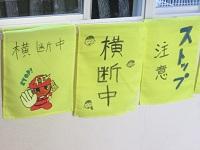 横断中
STOP!
横断中
ストップ
注意